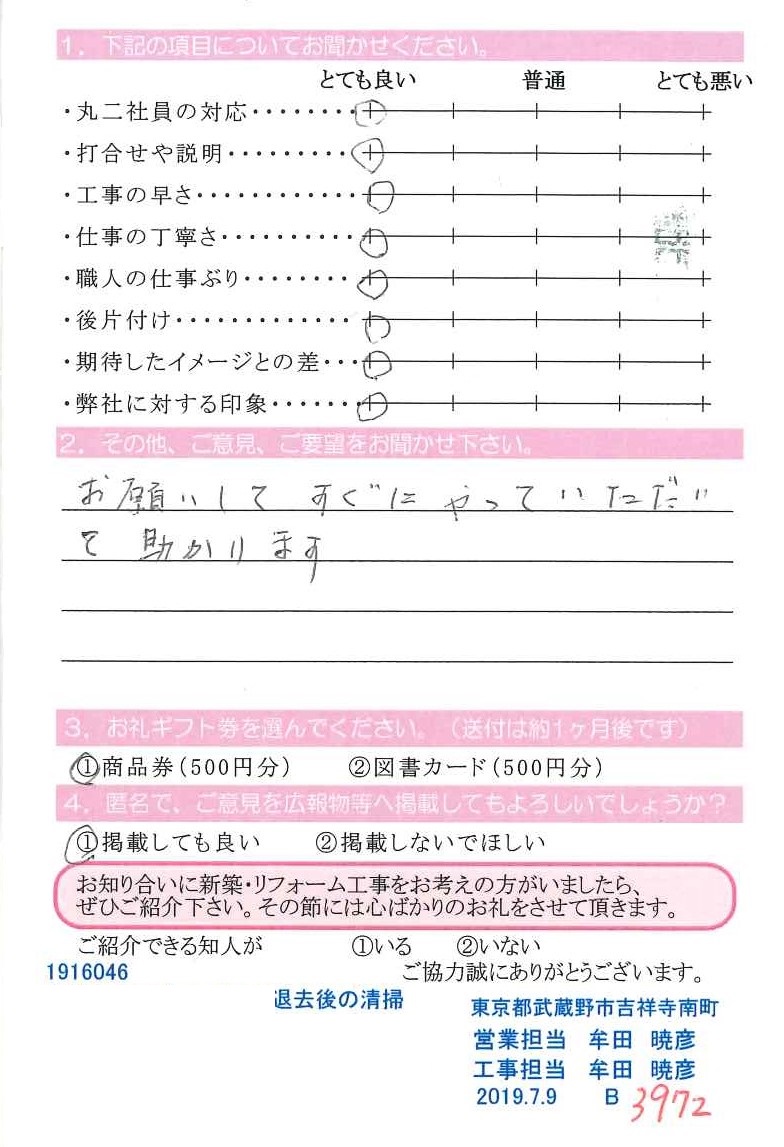 1. 下記の項目についてお聞かせください。
とても良い 普通 とても悪い
・丸二社員の対応・・・・・・・・
・打合せや説明・・・・・・・・・
・工事の早さ・・・・・・・・・・・・
・仕事の丁寧さ・・・・・・・・・・
・職人の仕事ぶり・・・・・・・・
・後片付け・・・・・・・・・・・・・
・期待したイメージとの差・・・
・弊社に対する印象・・・・・・・
2. その他、ご意見、ご要望をお聞かせ下さい。
お願いして すぐに やっていただい
て 助かります
3. お礼ギフト券を選んでください。(送付は約1ヶ月後です)
①商品券(500円分) ②図書カード(500円分)
4. 匿名で、ご意見を広報物等へ掲載してもよろしいでしょうか?
①掲載しても良い ②掲載しないでほしい
お知り合いに新築・リフォーム工事をお考えの方がいましたら、
ぜひご紹介下さい。その節には心ばかりのお礼をさせて頂きます。
ご紹介できる知人が ①いる ②いない
1916046 ご協力誠にありがとうございます。
退去後の清掃 東京都武蔵野市吉祥寺南町
営業担当 牟田 暁彦
工事担当 牟田 暁彦
2019.7.9 B 3972